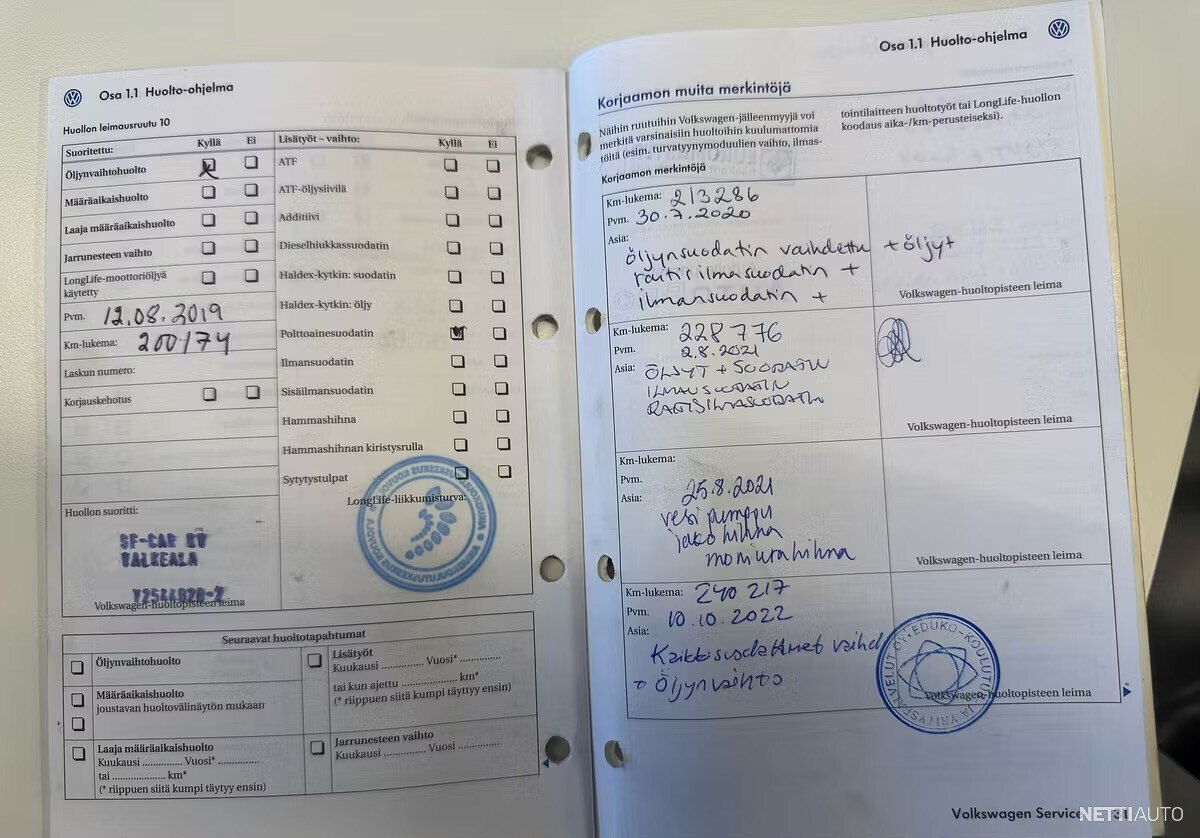 Osa 1.1 Huolto-ohjelma
Huollon leimausruutu 10
Suoritettu: Kyllä Ei
Öljynvaihtohuolto
Määräaikaishuolto
Laaja määräaikaishuolto
Jarrunesteen vaihto
LongLife-moottoriöljyä
käytetty
Pvm. 12.08.2019
Km-lukema: 200174
Laskun numero:
Korjauskehotus
Huollon suoritti:
SF-CAR KY
VALKEALA
Volkswagen-huoltopisteen leima
Lisätyöt – vaihto: Kyllä Ei
ATF
ATF-öljysiivilä
Additiivi
Dieselhiukkassuodatin
Haldex-kytkin: suodatin
Haldex-kytkin: öljy
Polttoainesuodatin
Ilmansuodatin
Sisäilmansuodatin
Hammashihna
Hammashihnan kiristysrulla
Sytytystulpat
LongLife-liikkumisturva:
Seuraavat huoltotapahtumat
Öljynvaihtohuolto
Määräaikaishuolto
joustavan huoltovälinäytön mukaan
Laaja määräaikaishuolto
Kuukausi .............. Vuosi* ..............
tai ...................... km*
(* riippuen siitä kumpi täytyy ensin)
Lisätyöt
Kuukausi .............. Vuosi* ..............
tai kun ajettu ...................... km*
(* riippuen siitä kumpi täyttyy ensin)
Jarrunesteen vaihto
Kuukausi .............. Vuosi ..............
Osa 1.1 Huolto-ohjelma
Korjaamon muita merkintöjä
Näihin ruutuihin Volkswagen-jälleenmyyjä voi
merkitä varsinaisiin huoltoihin kuulumattomia
töitä (esim. turvatyynymoduulien vaihto, ilmas-
tointilaitteen huoltotyöt tai LongLife-huollon
koodaus aika-/km-perusteiseksi).
Korjaamon merkintöjä
Km-lukema: 213286
Pvm. 30.7.2020
Asia:
öljynsuodatin vaihdettu + öljyt
raitisilmasuodatin +
ilmansuodatin +
Volkswagen-huoltopisteen leima
Km-lukema: 228776
Pvm. 2.8.2021
Asia: ÖLJYT + SUODATIN
ILMANSUODATIN
RAITISILMASUODATIN
Volkswagen-huoltopisteen leima
Km-lukema:
Pvm. 25.8.2021
Asia:
vesipumppu
jakohihna
moniurahihna
Volkswagen-huoltopisteen leima
Km-lukema: 240 217
Pvm. 10.10.2022
Asia:
Kaikki suodattimet vaihd
+ Öljynvaihto
EDUKO-KOULUTUS JA YRITYSPALVELUT OY
Volkswagen-huoltopisteen leima
Volkswagen Service 31
NETTIAUTO